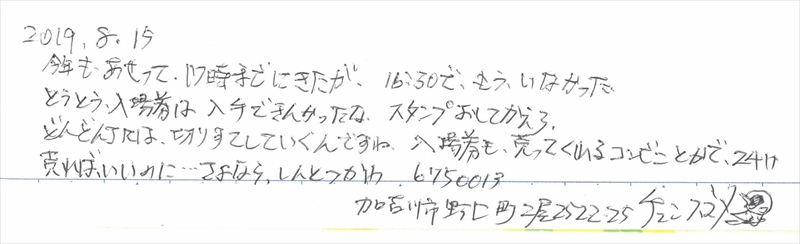 2019.8.15
今年も、あせって、17時までにきたが、16:30で、もう、いなかった
とうとう、入場券は 入手できんかったな、スタンプおしてかえろ、
どんどんJRは、切りすてしていくんですね、入場券も、売ってくれるコンビニとかで、24H
売ればいいのに…さよなら、しんとつかわ 6750013
加古川市野口町二屋2522-25